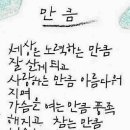 만큼
세상은 노력하는 만큼
잘 살게 되고
사랑하는 만큼 아름다워
지며
가슴을 여는 만큼 풍족
해지고 참는 만큼